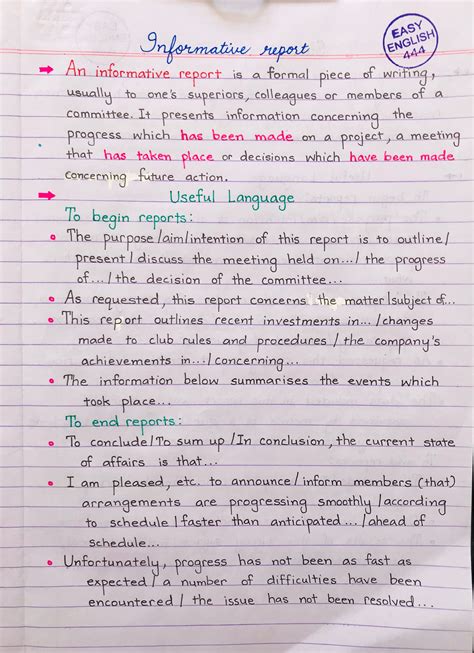 Informative report
EASY
ENGLISH
444
An informative report is a formal piece of writing,
usually to one's superiors, colleagues or members of a
committee. It presents information concerning the
progress which has been made on a project, a meeting
that has taken place or decisions which have been made
concerning future action.
Useful Language
To begin reports:
The purpose/aim/intention of this report is to outline/
present/discuss the meeting held on.../ the progress
of.../the decision of the committee...
As requested, this report concerns the matter/subject of...
This report outlines recent investments in.../changes
made to club rules and procedures/the company's
achievements in.../concerning...
The information below summarises the events which
took place...
To end reports:
To conclude/To sum up/In conclusion, the current state
of affairs is that...
I am pleased, etc. to announce/inform members (that)
arrangements are progressing smoothly/according
to schedule/faster than anticipated.../ahead of
schedule...
Unfortunately, progress has not been as fast as
expected/a number of difficulties have been
encountered/the issue has not been resolved...